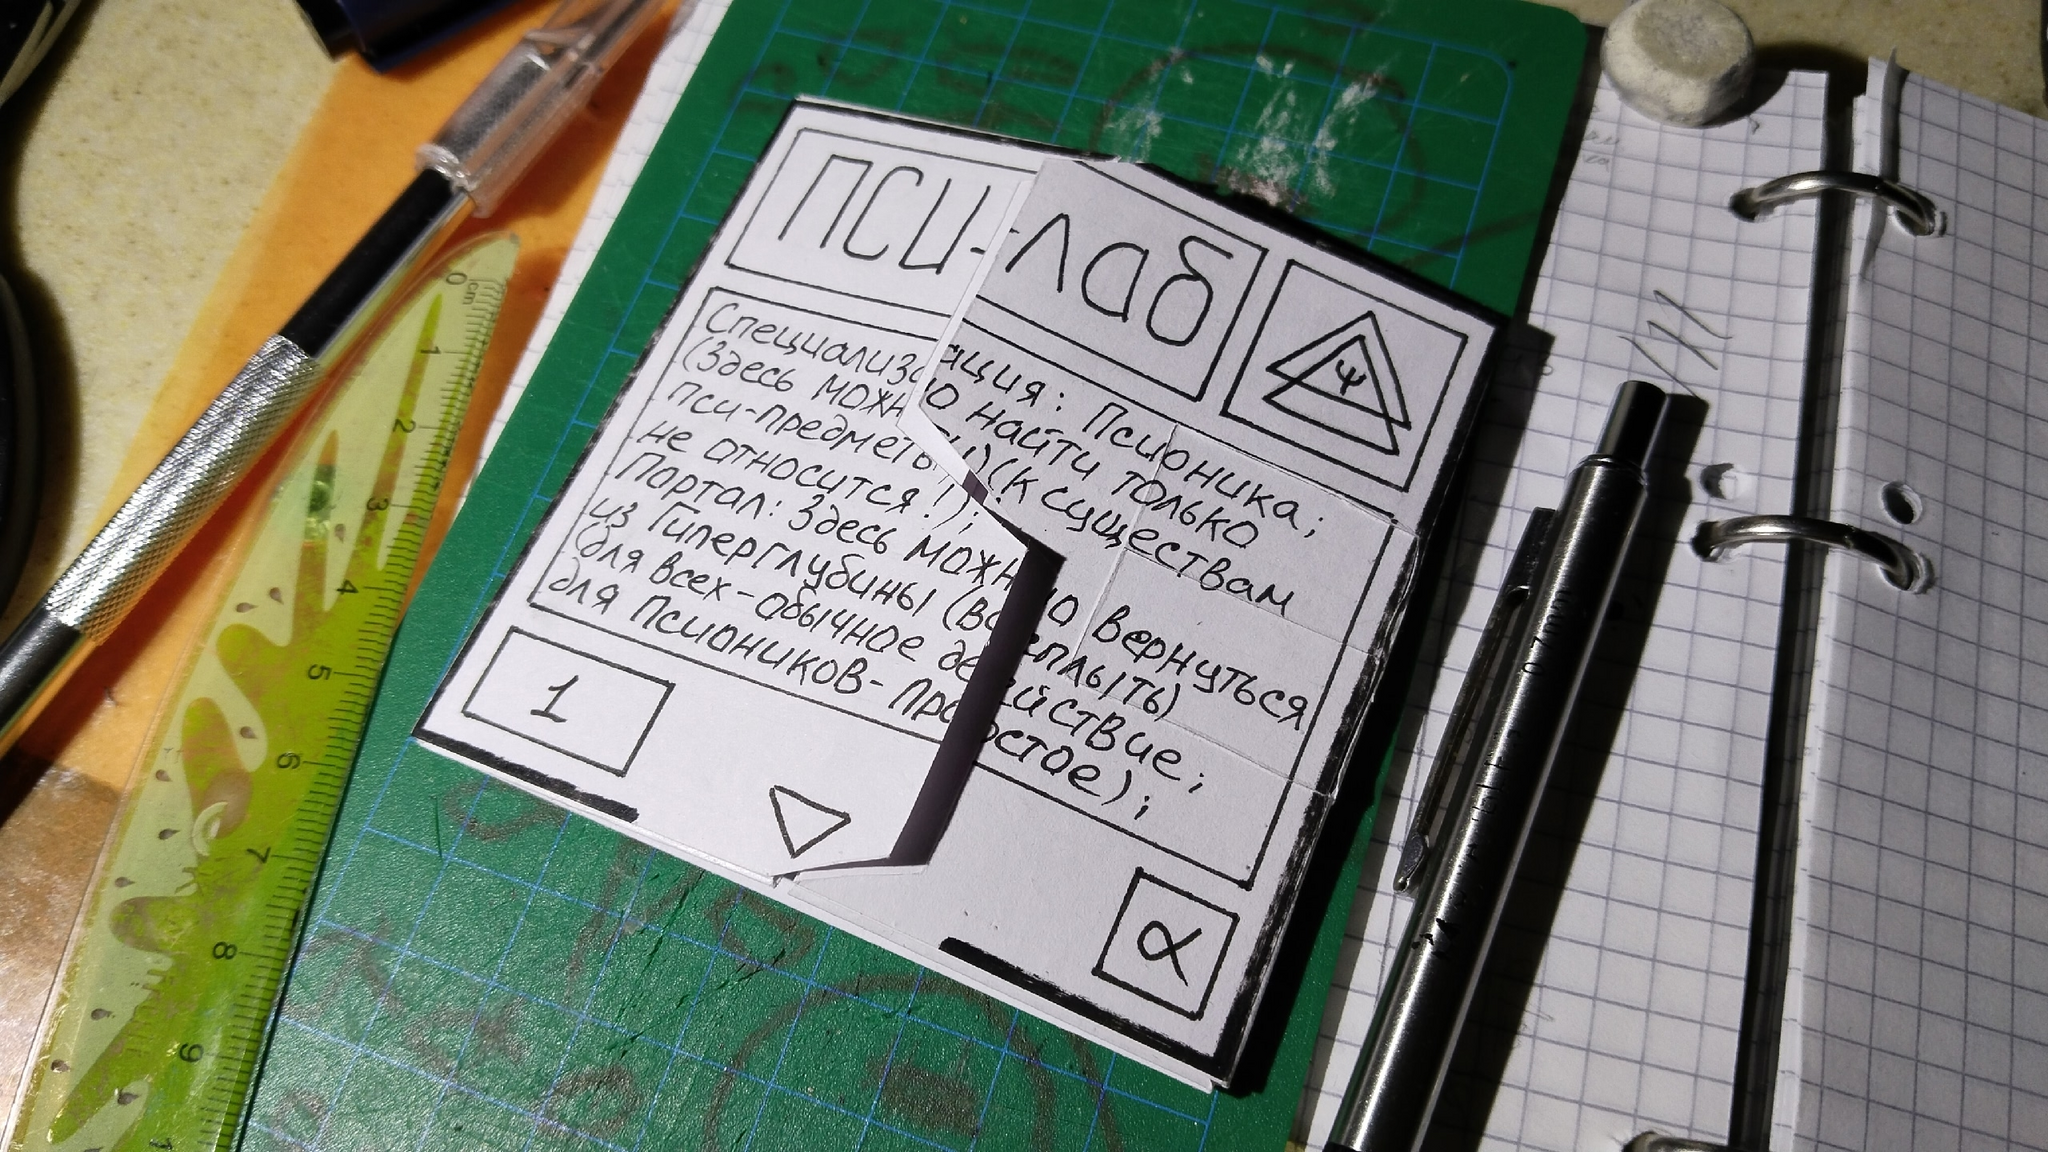 ПСИ-лаб
Ψ
Специализация: Псионика;
(Здесь можно найти только
пси-предметы!)(К существам
не относится!);
Портал: Здесь можно вернуться
из Гиперглубины (всплыть)
(для всех-обычное действие;
для Псиоников-простое);
1
α
0 cm
1
2
3
4
5
6
7
8
9